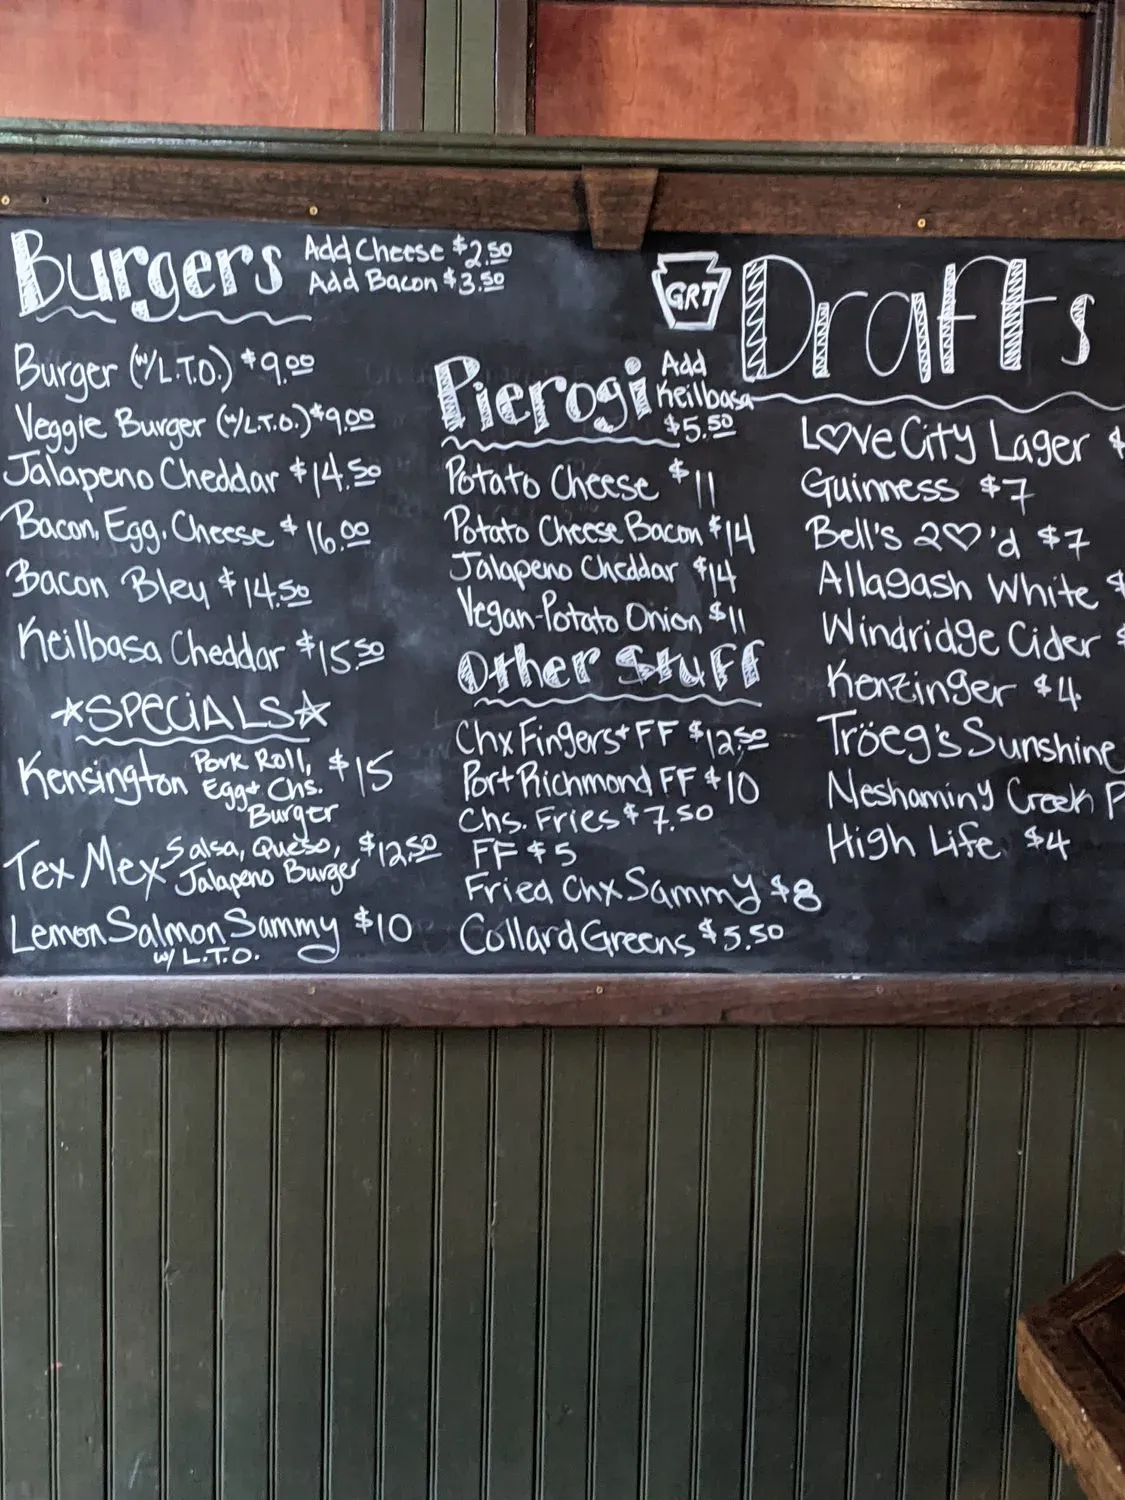 Burgers
Add Cheese $2.50
Add Bacon $3.50
Burger (w/L.T.O.) $9.00
Veggie Burger (w/L.T.O.) $9.00
Jalapeno Cheddar $14.50
Bacon, Egg, Cheese $16.00
Bacon Bleu $14.50
Keilbasa Cheddar $15.50
SPECiALS
Kensington Pork Roll, $15
Egg + Chs.
Burger
Tex Mex Salsa, Queso, $12.50
Jalapeno Burger
Lemon Salmon Sammy $10
w/ L.T.O.
Pierogi
Add
Keilbasa
$5.50
Potato Cheese $11
Potato Cheese Bacon $14
Jalapeno Cheddar $14
Vegan-Potato Onion $11
Other Stuff
Chx Fingers + FF $12.50
Port Richmond FF $10
Chs. Fries $7.50
FF $5
Fried Chx Sammy $8
Collard Greens $5.50
GRT
Drafts
L♡ve City Lager $
Guinness $7
Bell's 2♡'d $7
Allagash White $
Windridge Cider $
Kenzinger $4
Tröeg's Sunshine
Neshaminy Creek P
High Life $4